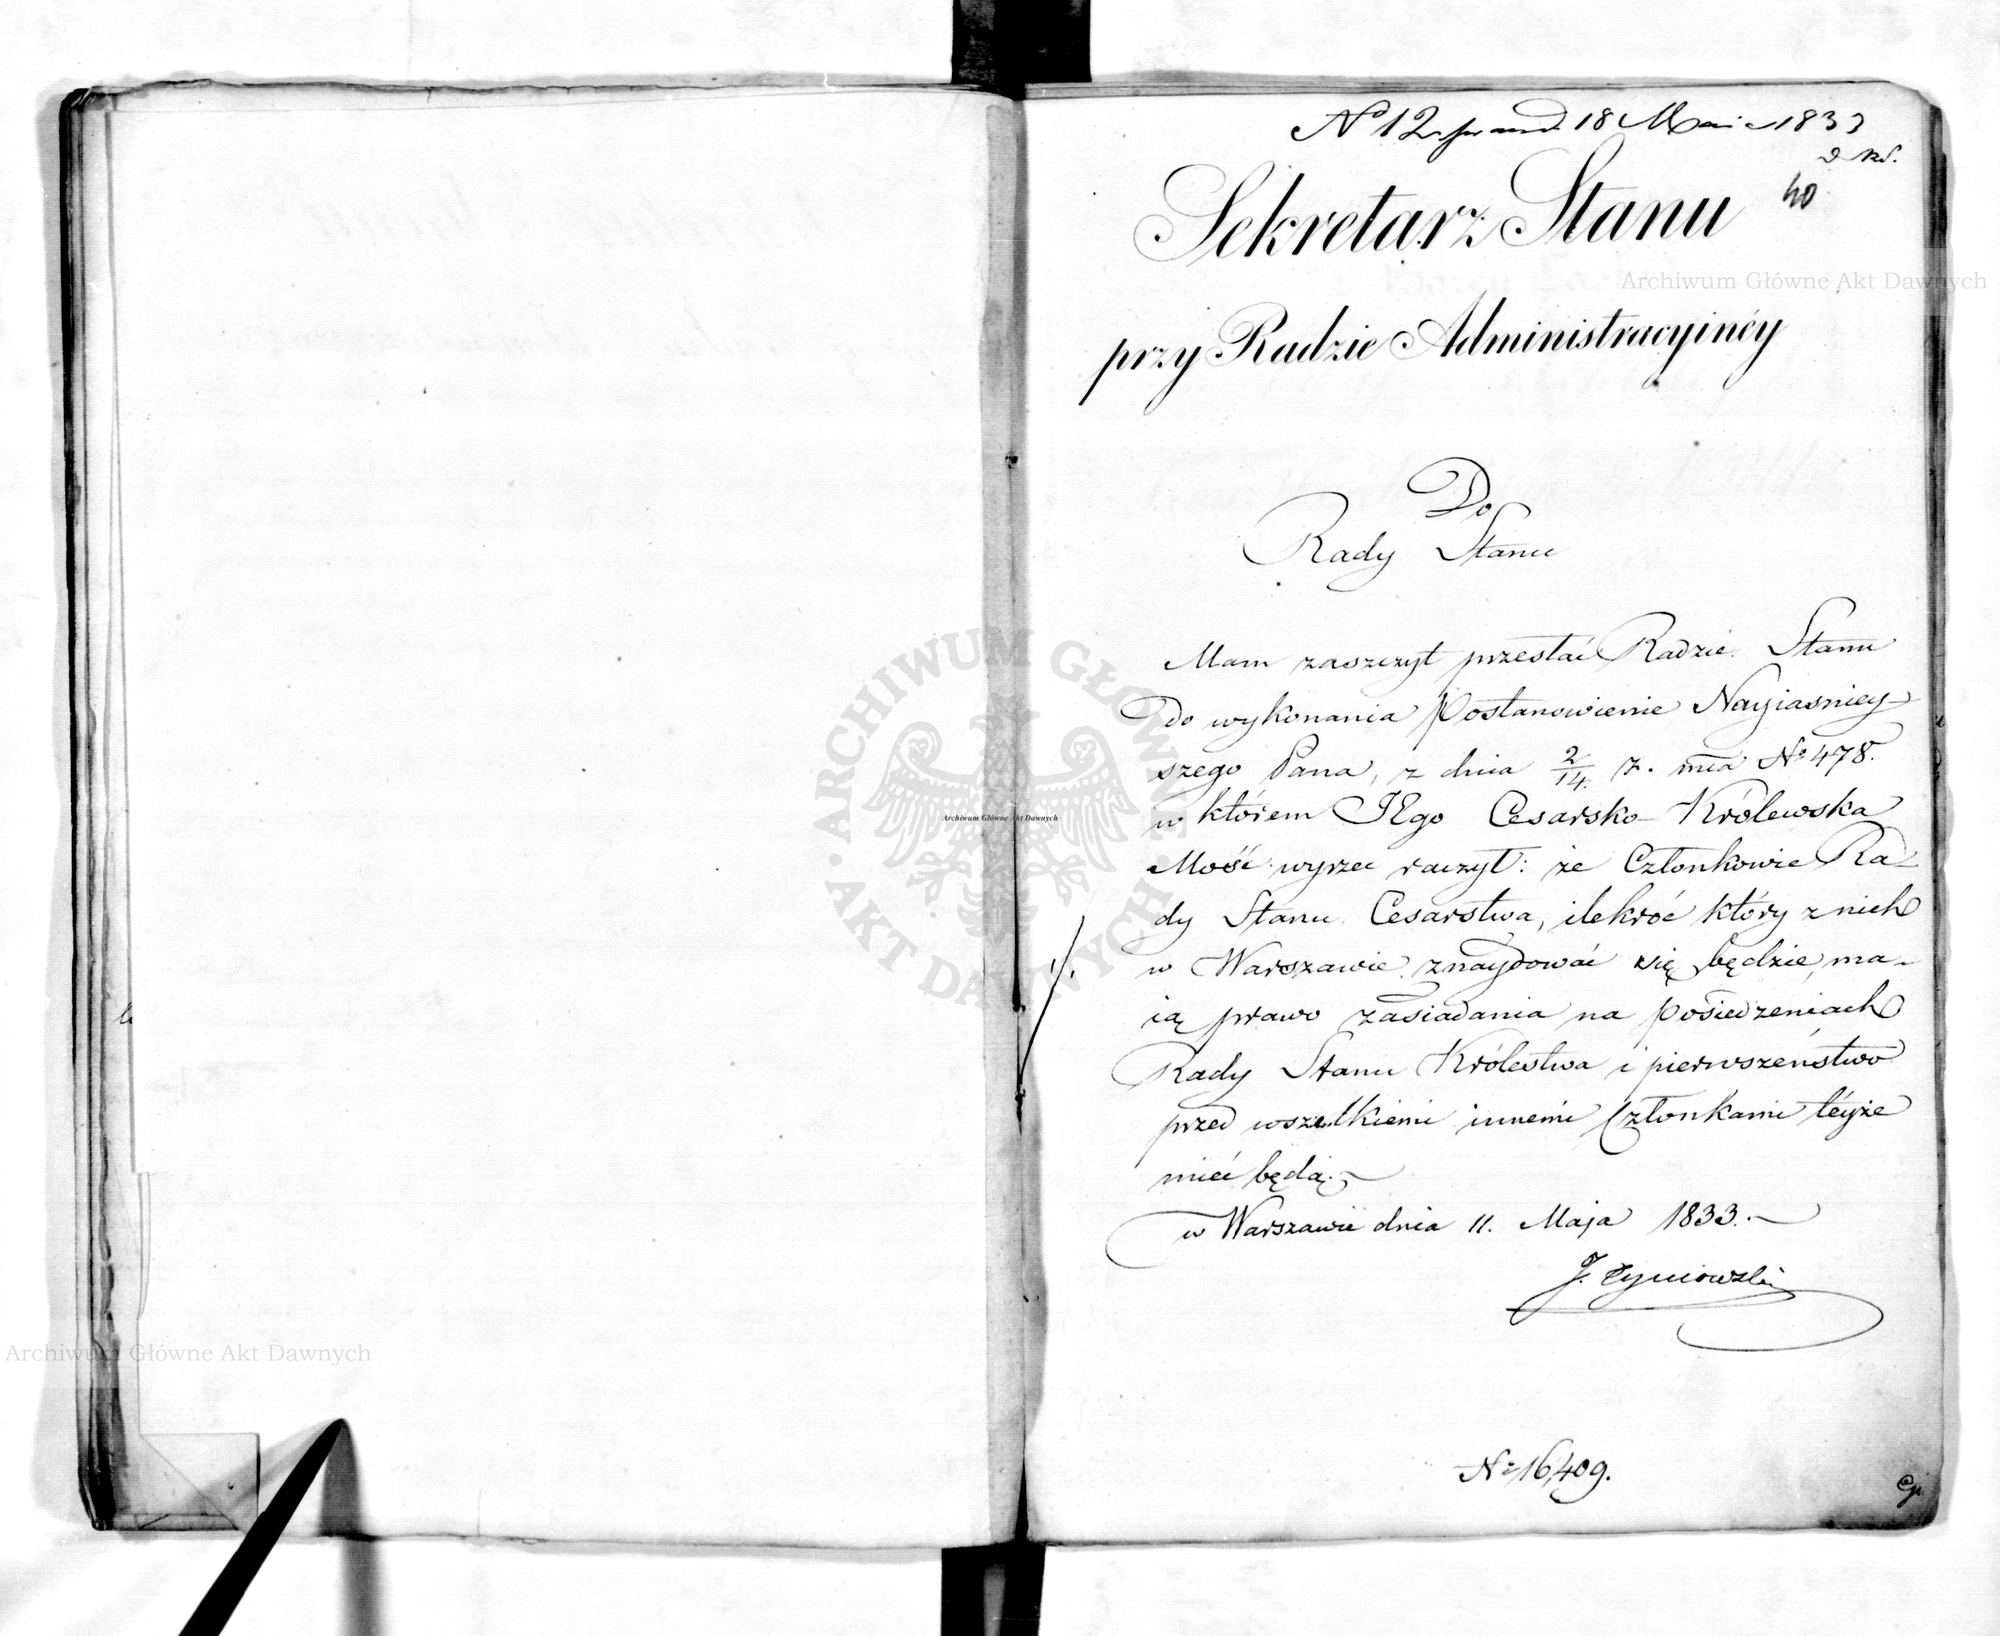 No 12 18 Maia 1833
40
Sekretarz Stanu
przy Radzie Administracyinéy
Do
Rady Stanu
Mam zaszczyt przesłać Radzie Stanu
do wykonania Postanowienie Nayiaśniey-
szego Pana, z dnia 2/14. z. mca No 478.
w którem JEgo Cesarsko-Królewska
Mość wyrzec raczył: że Członkowie Ra-
dy Stanu Cesarstwa, ilekroć który z nich
w Warszawie znaydować się będzie, ma-
ią prawo zasiadania na posiedzeniach
Rady Stanu Królestwa i pierwszeństwo
przed wszelkiemi innemi Członkami téyże
mieć będą.
w Warszawie dnia 11. Maja 1833.
J. Tymowski
No 16,409.
Archiwum Główne Akt Dawnych
ARCHIWUM GŁÓWNE AKT DAWNYCH
Archiwum Główne Akt Dawnych
Archiwum Główne Akt Dawnych